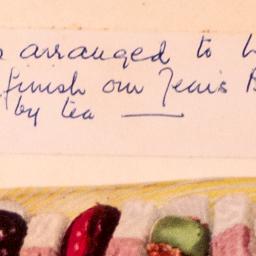 arranged to
finish our Jean's B
by tea